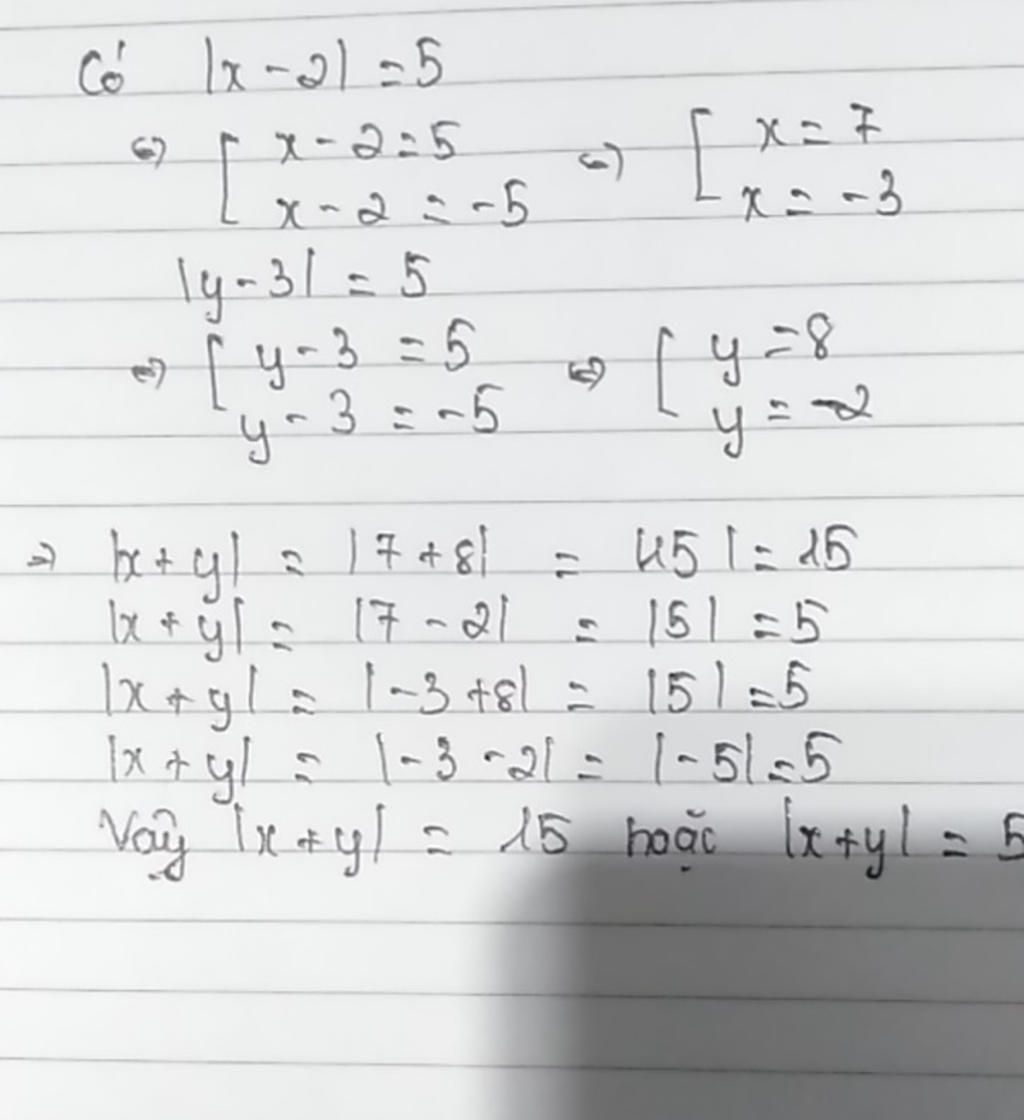 Có |x - 2| = 5
⇔ [ x - 2 = 5 ⇔ [ x = 7
x - 2 = -5 x = -3
|y - 3| = 5
⇔ [ y - 3 = 5 ⇔ [ y = 8
y - 3 = -5 y = -2
⇒ |x + y| = |7 + 8| = |15| = 15
|x + y| = |7 - 2| = |5| = 5
|x + y| = |-3 + 8| = |5| = 5
|x + y| = |-3 - 2| = |-5| = 5
Vậy |x + y| = 15 hoặc |x + y| = 5